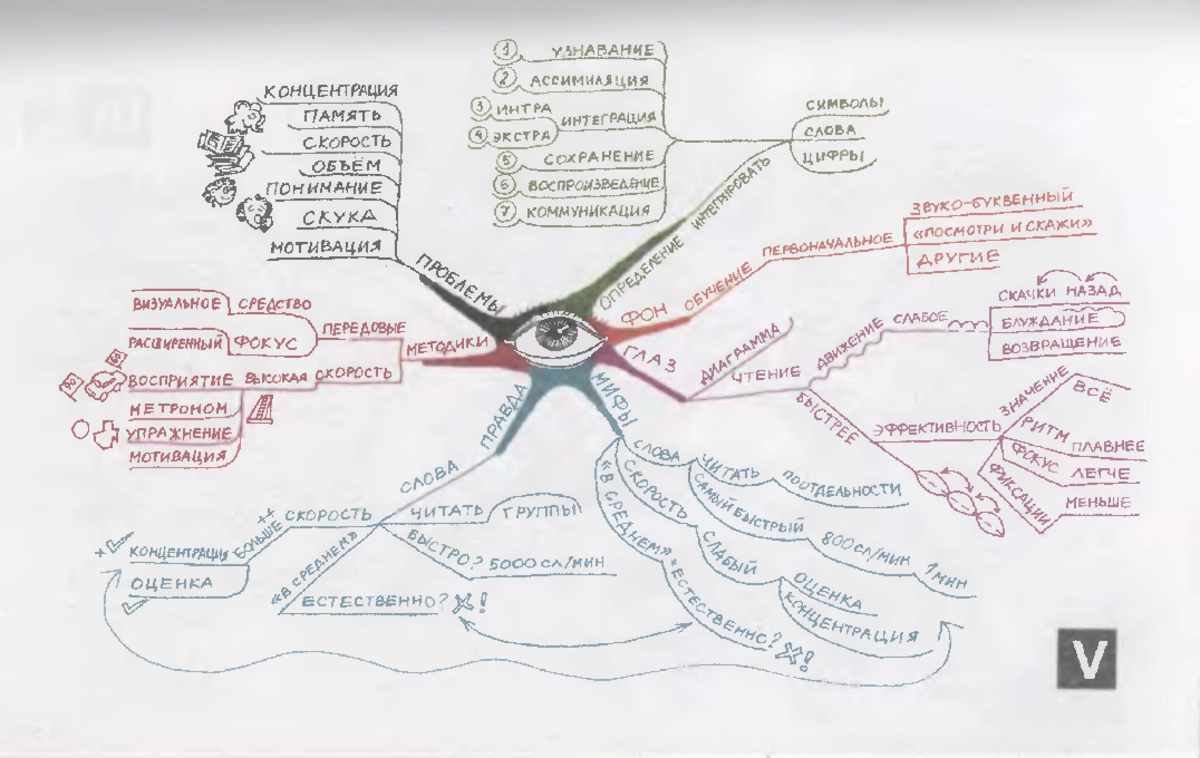 КОНЦЕНТРАЦИЯ
ПАМЯТЬ
СКОРОСТЬ
ОБЪЕМ
ПОНИМАНИЕ
СКУКА
МОТИВАЦИЯ
ПРОБЛЕМЫ
1 УЗНАВАНИЕ
2 АССИМИЛЯЦИЯ
3 ИНТРА
4 ЭКСТРА
ИНТЕГРАЦИЯ
5 СОХРАНЕНИЕ
6 ВОСПРОИЗВЕДЕНИЕ
7 КОММУНИКАЦИЯ
ОПРЕДЕЛЕНИЕ ИНТЕГРИРОВАТЬ
СИМВОЛЫ
СЛОВА
ЦИФРЫ
ФОН ОБУЧЕНИЕ ПЕРВОНАЧАЛЬНОЕ
ЗВУКО-БУКВЕННЫЙ
«ПОСМОТРИ И СКАЖИ»
ДРУГИЕ
ГЛАЗ
ДИАГРАММА
ЧТЕНИЕ
ДВИЖЕНИЕ СЛАБОЕ
СКАЧКИ НАЗАД
БЛУЖДАНИЕ
ВОЗВРАЩЕНИЕ
БЫСТРЕЕ
ЭФФЕКТИВНОСТЬ
ЗНАЧЕНИЕ ВСЁ
РИТМ ПЛАВНЕЕ
ФОКУС ЛЕГЧЕ
ФИКСАЦИИ МЕНЬШЕ
МИФЫ
СЛОВА ЧИТАТЬ ПООТДЕЛЬНОСТИ
САМЫЙ БЫСТРЫЙ 800 СЛ/МИН 1 МИН
СКОРОСТЬ СЛАБЫЙ
ОЦЕНКА
КОНЦЕНТРАЦИЯ
«В СРЕДНЕМ» = ЕСТЕСТВЕННО? !
ПРАВДА
СЛОВА
ЧИТАТЬ ГРУППЫ
БЫСТРО? 5000 СЛ/МИН
СКОРОСТЬ
БОЛЬШЕ ++
КОНЦЕНТРАЦИЯ
ОЦЕНКА
«В СРЕДНЕМ»
ЕСТЕСТВЕННО? !
МЕТОДИКИ
ПЕРЕДОВЫЕ
ВИЗУАЛЬНОЕ СРЕДСТВО
РАСШИРЕННЫЙ ФОКУС
СКОРОСТЬ
ВОСПРИЯТИЕ ВЫСОКАЯ
МЕТРОНОМ
УПРАЖНЕНИЕ
МОТИВАЦИЯ
V